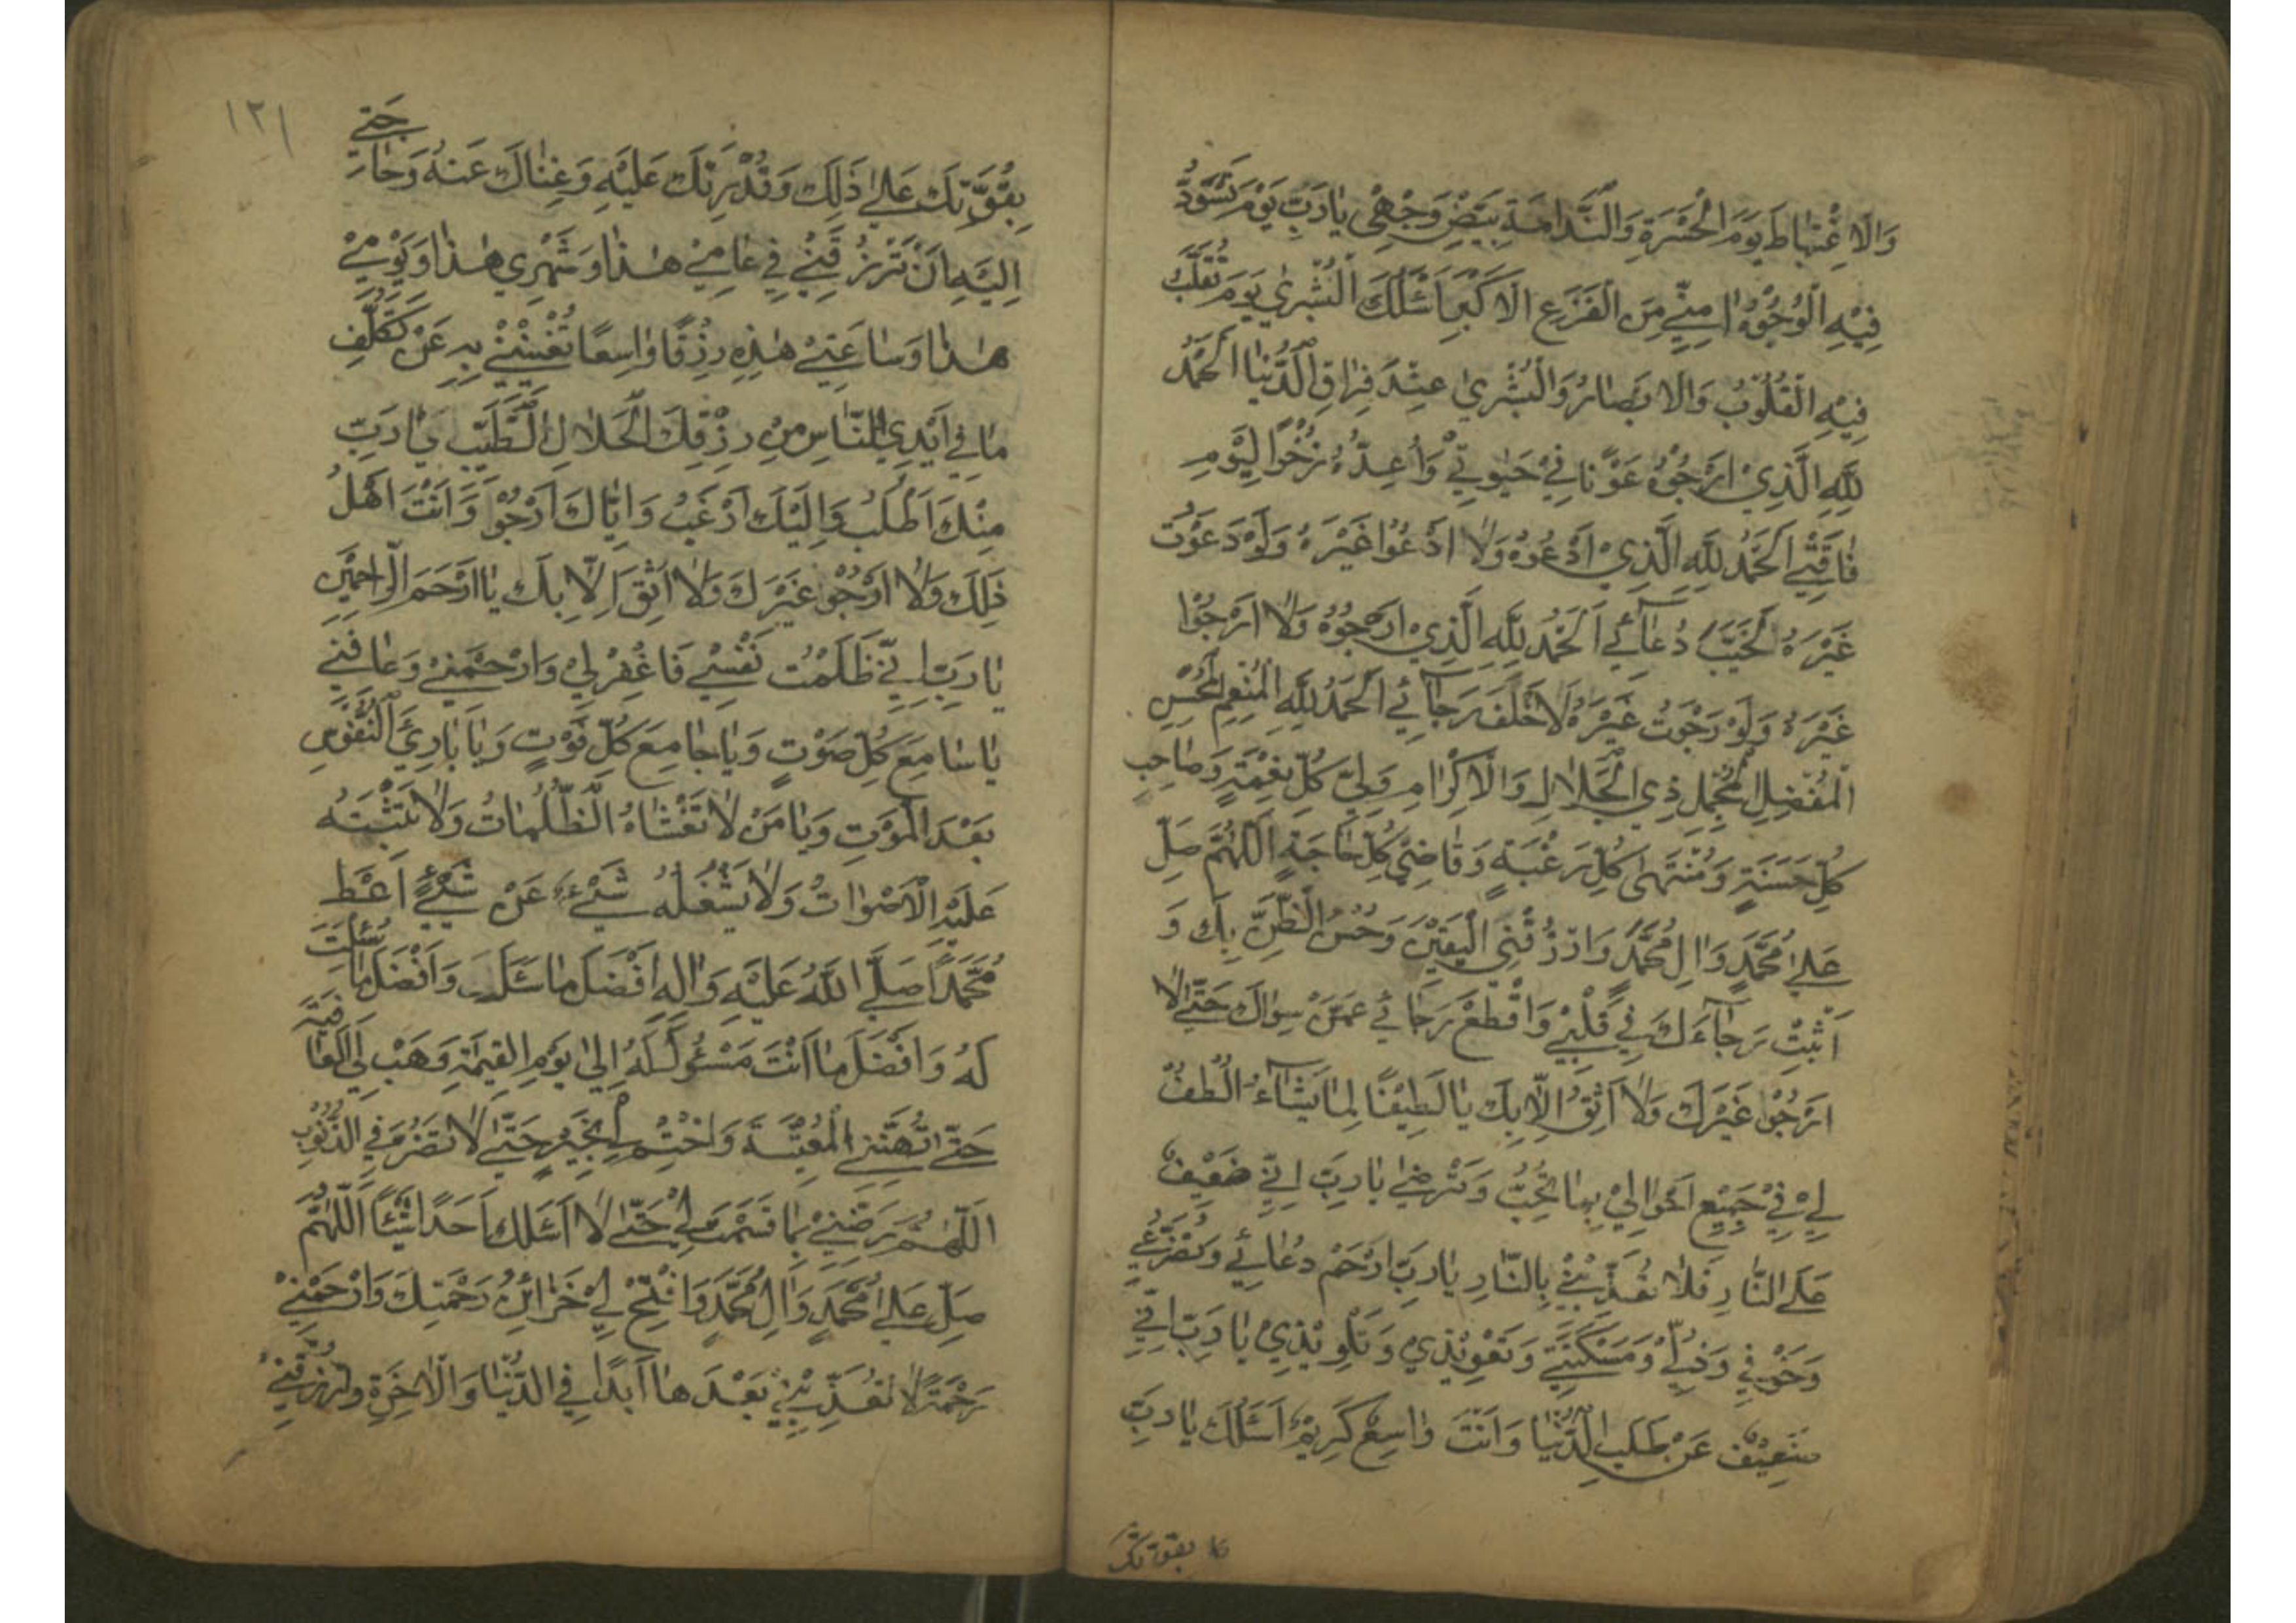 وَالاغْتِبَاطَ يَوْمَ الْحَسْرَةِ وَالنَّدَامَةِ بَيِّضْ وَجْهِي يَا رَبِّ يَوْمَ تَسْوَدُّ
فِيْهِ الْوُجُوْهُ امِنِّي مِنَ الْفَزَعِ الاَكْبَرِ اَسْئَلُكَ الْبُشْرىٰ يَوْمَ تُقَلَّبُ
فِيْهِ الْقُلُوْبُ وَالاَبْصَارُ وَالْبُشْرىٰ عِنْدَ فِرَاقِ الدُّنْيَا اَلْحَمْدُ
لِلّهِ الَّذِيْ اَرْجُوْهُ عَوْنًا فِيْ حَيٰوتِيْ وَاُعِدُّهُ ذُخْرًا لِيَوْمِ
فَاقَتِيْ اَلْحَمْدُ لِلّهِ الَّذِيْ اَدْعُوْهُ وَلَا اَدْعُوْا غَيْرَهُ وَلَوْ دَعَوْتُ
غَيْرَهُ لَخَيَّبَ دُعَآئِيْ اَلْحَمْدُ لِلّهِ الَّذِيْ اَرْجُوْهُ وَلَا اَرْجُوْا
غَيْرَهُ وَلَوْ رَجَوْتُ غَيْرَهُ لَاَخْلَفَ رَجَآئِيْ اَلْحَمْدُ لِلّهِ الْمُنْعِمِ الْمُحْسِنِ
الْمُفْضِلِ الْمُجْمِلِ ذِي الْجَلَالِ وَالْاِكْرَامِ وَلِيِّ كُلِّ نِعْمَةٍ وَصَاحِبِ
كُلِّ حَسَنَةٍ وَمُنْتَهىٰ كُلِّ رَغْبَةٍ وَقَاضِيْ كُلِّ حَاجَةٍ اَللّهُمَّ صَلِّ
عَلىٰ مُحَمَّدٍ وَالِ مُحَمَّدٍ وَارْزُقْنِي الْيَقِيْنَ وَحُسْنَ الظَّنِّ بِكَ وَ
اَثْبِتْ رَجَآءَكَ فِيْ قَلْبِيْ وَاقْطَعْ رَجَائِيْ عَمَّنْ سِوَاكَ حَتّىٰ لَا
اَرْجُوْا غَيْرَكَ وَلَا اَثِقُ اِلَّا بِكَ يَا لَطِيْفًا لِمَا يَشَآءُ الْطُفْ
لِيْ فِيْ جَمِيْعِ اَحْوَالِيْ بِمَا تُحِبُّ وَتَرْضىٰ يَا رَبِّ اِنِّيْ ضَعِيْفٌ
عَلَى النَّارِ فَلَا تُعَذِّبْنِيْ بِالنَّارِ يَا رَبِّ ارْحَمْ دُعَائِيْ وَتَضَرُّعِيْ
وَخَوْفِيْ وَذُلِّيْ وَمَسْكَنَتِيْ وَتَعْوِيْذِيْ وَتَلْوِيْذِيْ يَا رَبِّ اِنِّيْ
ضَعِيْفٌ عَنْ طَلَبِ الدُّنْيَا وَاَنْتَ وَاسِعٌ كَرِيْمٌ اَسْئَلُكَ يَا رَبِّ
بقوتك
١٢١
بِقُوَّتِكَ عَلىٰ ذٰلِكَ وَقُدْرَتِكَ عَلَيْهِ وَغِنَاكَ عَنْهُ وَحَاجَتِيْ
اِلَيْهِ اَنْ تَرْزُقَنِيْ فِيْ عَامِيْ هٰذَا وَشَهْرِيْ هٰذَا وَيَوْمِيْ
هٰذَا وَسَاعَتِيْ هٰذِهِ رِزْقًا وَاسِعًا تُغْنِيْنِيْ بِهِ عَنْ تَكَلُّفِ
مَا فِيْ اَيْدِي النَّاسِ مِنْ رِزْقِكَ الْحَلَالِ الطَّيِّبِ يَا رَبِّ
مِنْكَ اَطْلُبُ وَاِلَيْكَ اَرْغَبُ وَاِيَّاكَ اَرْجُوْ وَاَنْتَ اَهْلُ
ذٰلِكَ وَلَا اَرْجُوْ غَيْرَكَ وَلَا اَثِقُ اِلَّا بِكَ يَا اَرْحَمَ الرَّاحِمِيْنَ
يَا رَبِّ اِنِّيْ ظَلَمْتُ نَفْسِيْ فَاغْفِرْ لِيْ وَارْحَمْنِيْ وَعَافِنِيْ
يَا سَامِعَ كُلِّ صَوْتٍ وَيَا جَامِعَ كُلِّ فَوْتٍ وَيَا بَارِئَ النُّفُوْسِ
بَعْدَ الْمَوْتِ وَيَا مَنْ لَا تَغْشَاهُ الظُّلُمَاتُ وَلَا تَشْتَبِهُ
عَلَيْهِ الْاَصْوَاتُ وَلَا يَشْغَلُهُ شَيْءٌ عَنْ شَيْءٍ اَعْطِ
مُحَمَّدًا صَلَّى اللهُ عَلَيْهِ وَالِهِ اَفْضَلَ مَا سَئَلَكَ وَاَفْضَلَ مَا سُئِلْتَ
لَهُ وَاَفْضَلَ مَا اَنْتَ مَسْئُوْلٌ لَهُ اِلىٰ يَوْمِ الْقِيٰمَةِ وَهَبْ لِيَ الْعَافِيَةَ
حَتّىٰ تُهَنِّئَنِي الْمَعِيْشَةَ وَاخْتِمْ لِيْ بِخَيْرٍ حَتّىٰ لَا تَضُرَّنِي الذُّنُوْبُ
اَللّهُمَّ رَضِّنِيْ بِمَا قَسَمْتَ لِيْ حَتّىٰ لَا اَسْئَلَ اَحَدًا شَيْئًا اَللّهُمَّ
صَلِّ عَلىٰ مُحَمَّدٍ وَالِ مُحَمَّدٍ وَافْتَحْ لِيْ خَزَائِنَ رَحْمَتِكَ وَارْحَمْنِيْ
رَحْمَةً لَا تُعَذِّبُنِيْ بَعْدَهَا اَبَدًا فِي الدُّنْيَا وَالْاٰخِرَةِ وَارْزُقْنِيْ